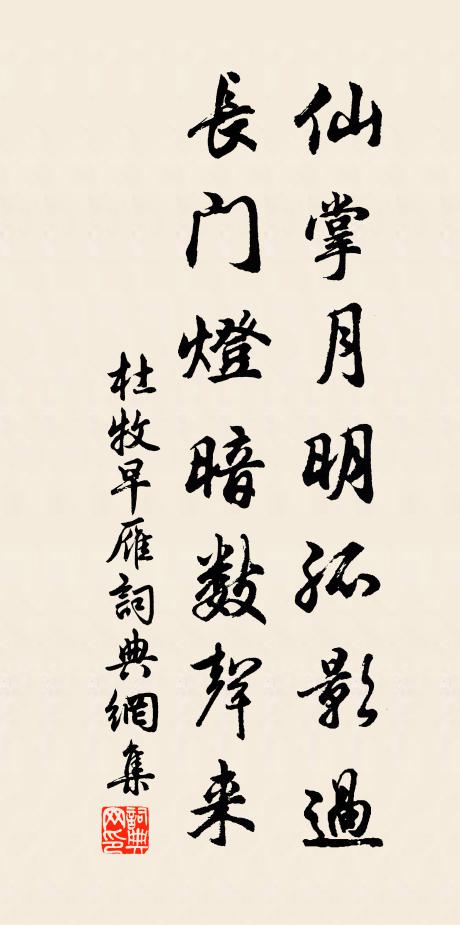 仙掌月明孤影過
長門燈暗數聲来
杜牧早雁詞典網集
詞典網印